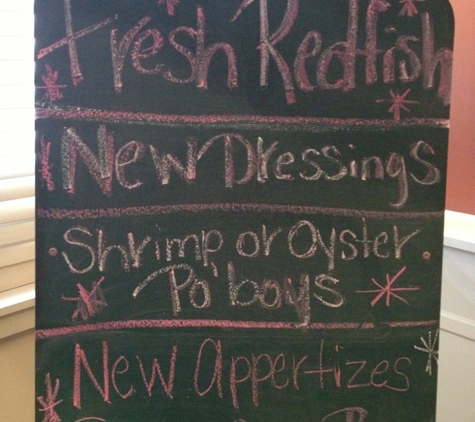 Fresh Redfish
New Dressings
Shrimp or Oyster
Po' boys
New Appertizes